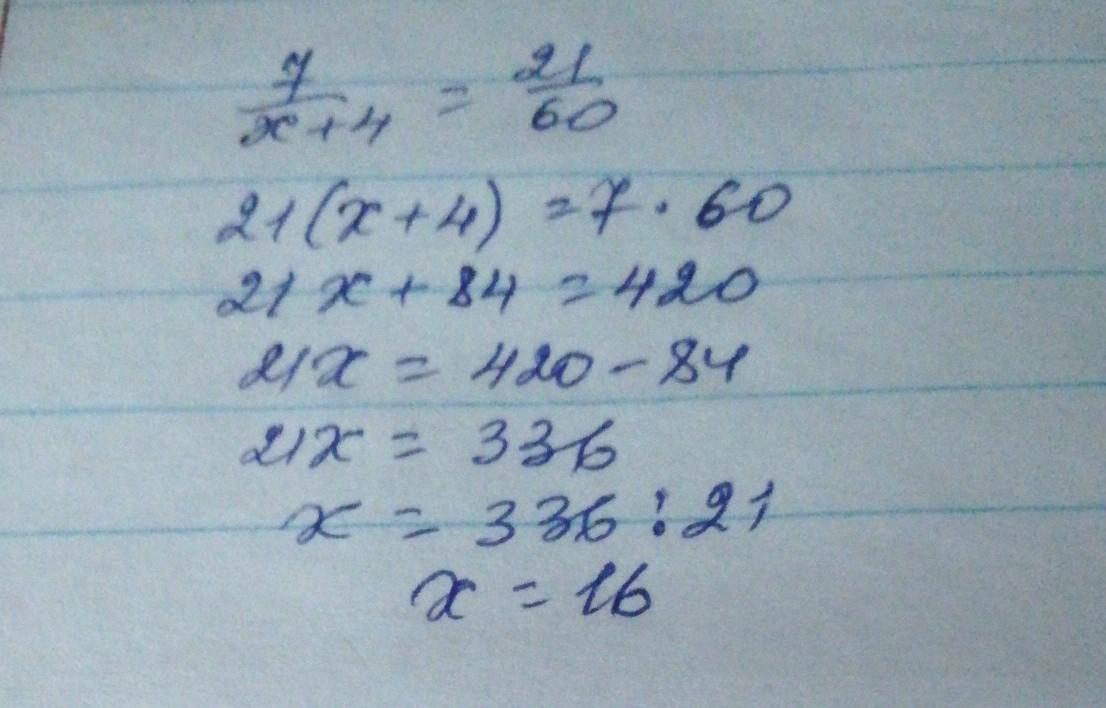 7/(x+4) = 21/60
21(x+4) = 7·60
21x+84 = 420
21x = 420-84
21x = 336
x = 336:21
x = 16